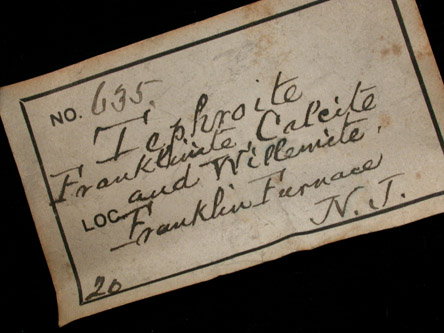 NO. 635.
Tephroite
Franklinite, Calcite
and Willemite.
LOC. Franklin Furnace
N. J.
20